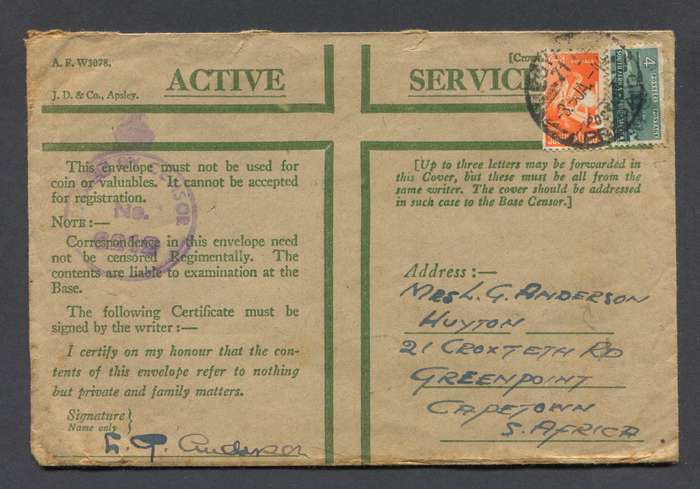 A. F. W3078.
J. D. & Co., Apsley.
ACTIVE SERVICE
This envelope must not be used for
coin or valuables. It cannot be accepted
for registration.
NOTE:—
Correspondence in this envelope need
not be censored Regimentally. The
contents are liable to examination at the
Base.
The following Certificate must be
signed by the writer:—
I certify on my honour that the con-
tents of this envelope refer to nothing
but private and family matters.
Signature
Name only
L. G. Anderson
No.
[Up to three letters may be forwarded in
this Cover, but these must be all from the
same writer. The cover should be addressed
in such case to the Base Censor.]
Address:—
MRS L. G. ANDERSON
HUYTON
21 CROXTETH RD
GREENPOINT
CAPETOWN
S. AFRICA
4
SOUTH AFRICA